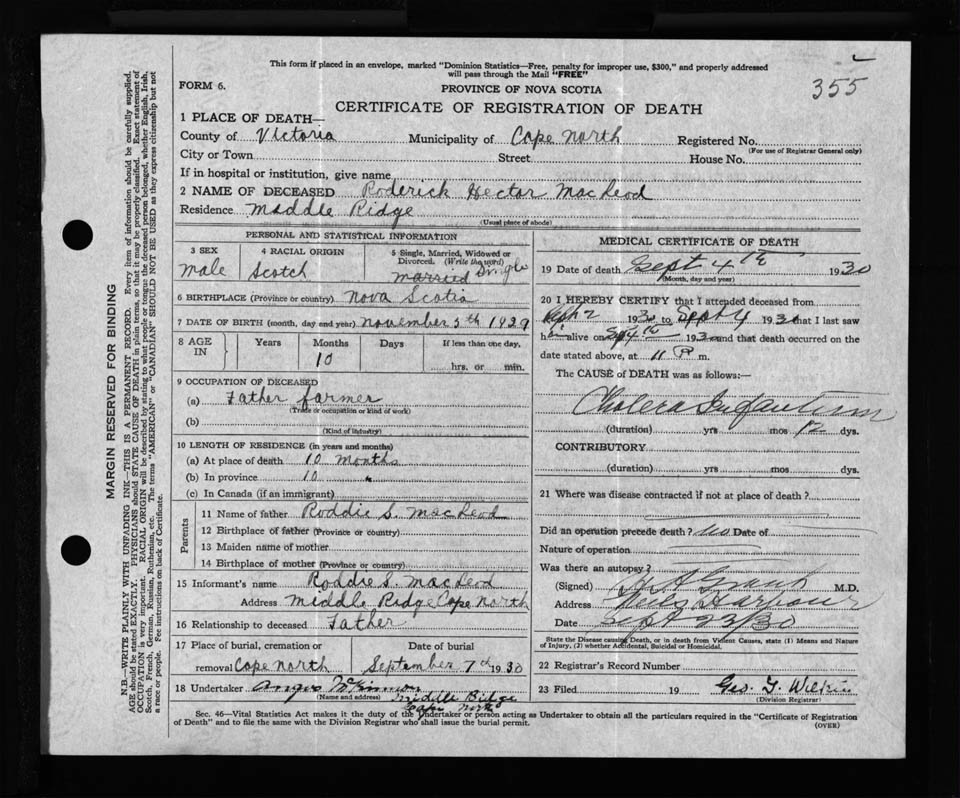 This form if placed in an envelope, marked "Dominion Statistics—Free, penalty for improper use, $300," and properly addressed
will pass through the Mail "FREE"
355
FORM 6.
PROVINCE OF NOVA SCOTIA
CERTIFICATE OF REGISTRATION OF DEATH
1 PLACE OF DEATH—
County of Victoria Municipality of Cape North Registered No.
(For use of Registrar General only)
City or Town Street House No.
If in hospital or institution, give name
2 NAME OF DECEASED Roderick Hector MacLeod
Residence Middle Ridge
(Usual place of abode)
MARGIN RESERVED FOR BINDING
N.B.—WRITE PLAINLY WITH UNFADING INK—THIS IS A PERMANENT RECORD. Every item of information should be carefully supplied.
AGE should be stated EXACTLY. PHYSICIANS should STATE CAUSE OF DEATH in plain terms, so that it may be properly classified. Exact statement of
OCCUPATION is very important. RACIAL ORIGIN will be described by stating to what people or tongue the deceased person belonged, whether English, Irish,
Scotch, French, German, Russian, Ruthenian, etc. The terms "AMERICAN" or "CANADIAN" SHOULD NOT BE USED as they express citizenship but not
a race or people. See instructions on back of Certificate.
PERSONAL AND STATISTICAL INFORMATION
3 SEX 4 RACIAL ORIGIN 5 Single, Married, Widowed or
Divorced. (Write the word)
Male Scotch Married Single
6 BIRTHPLACE (Province or country) Nova Scotia
7 DATE OF BIRTH (month, day and year) November 5th 1929
8 AGE IN Years Months Days If less than one day,
10 hrs. or min.
9 OCCUPATION OF DECEASED
(a) Father farmer
(Trade or occupation or kind of work)
(b)
(Kind of industry)
10 LENGTH OF RESIDENCE (in years and months)
(a) At place of death 10 months
(b) In province 10 "
(c) In Canada (if an immigrant)
Parents
11 Name of father Roddie S. MacLeod
12 Birthplace of father (Province or country)
13 Maiden name of mother
14 Birthplace of mother (Province or country)
15 Informant's name Roddie S. MacLeod
Address Middle Ridge Cape North
16 Relationship to deceased Father
17 Place of burial, cremation or Date of burial
removal Cape North September 7th 1930
18 Undertaker Angus McKinnon
(Name and address) Middle Ridge
Cape North
MEDICAL CERTIFICATE OF DEATH
19 Date of death Sept 4th 1930
(Month, day and year)
20 I HEREBY CERTIFY that I attended deceased from
Sept 2 1930 to Sept 4 1930 that I last saw
h alive on Sept 4th 1930 and that death occurred on the
date stated above, at 11 P m.
The CAUSE of DEATH was as follows:—
Cholera Infantum
(duration) yrs mos 12 dys.
CONTRIBUTORY
(duration) yrs mos dys.
21 Where was disease contracted if not at place of death?
Did an operation precede death? No Date of
Nature of operation
Was there an autopsy?
(Signed) Grant M.D.
Address Harbour
Date Sept 23/30
State the Disease causing Death, or in death from Violent Causes, state (1) Means and Nature
of Injury, (2) whether Accidental, Suicidal or Homicidal.
22 Registrar's Record Number
23 Filed 19 Geo. G. Wilkie
(Division Registrar)
Sec. 46—Vital Statistics Act makes it the duty of the Undertaker or person acting as Undertaker to obtain all the particulars required in the "Certificate of Registration
of Death" and to file the same with the Division Registrar who shall issue the burial permit.
(OVER)